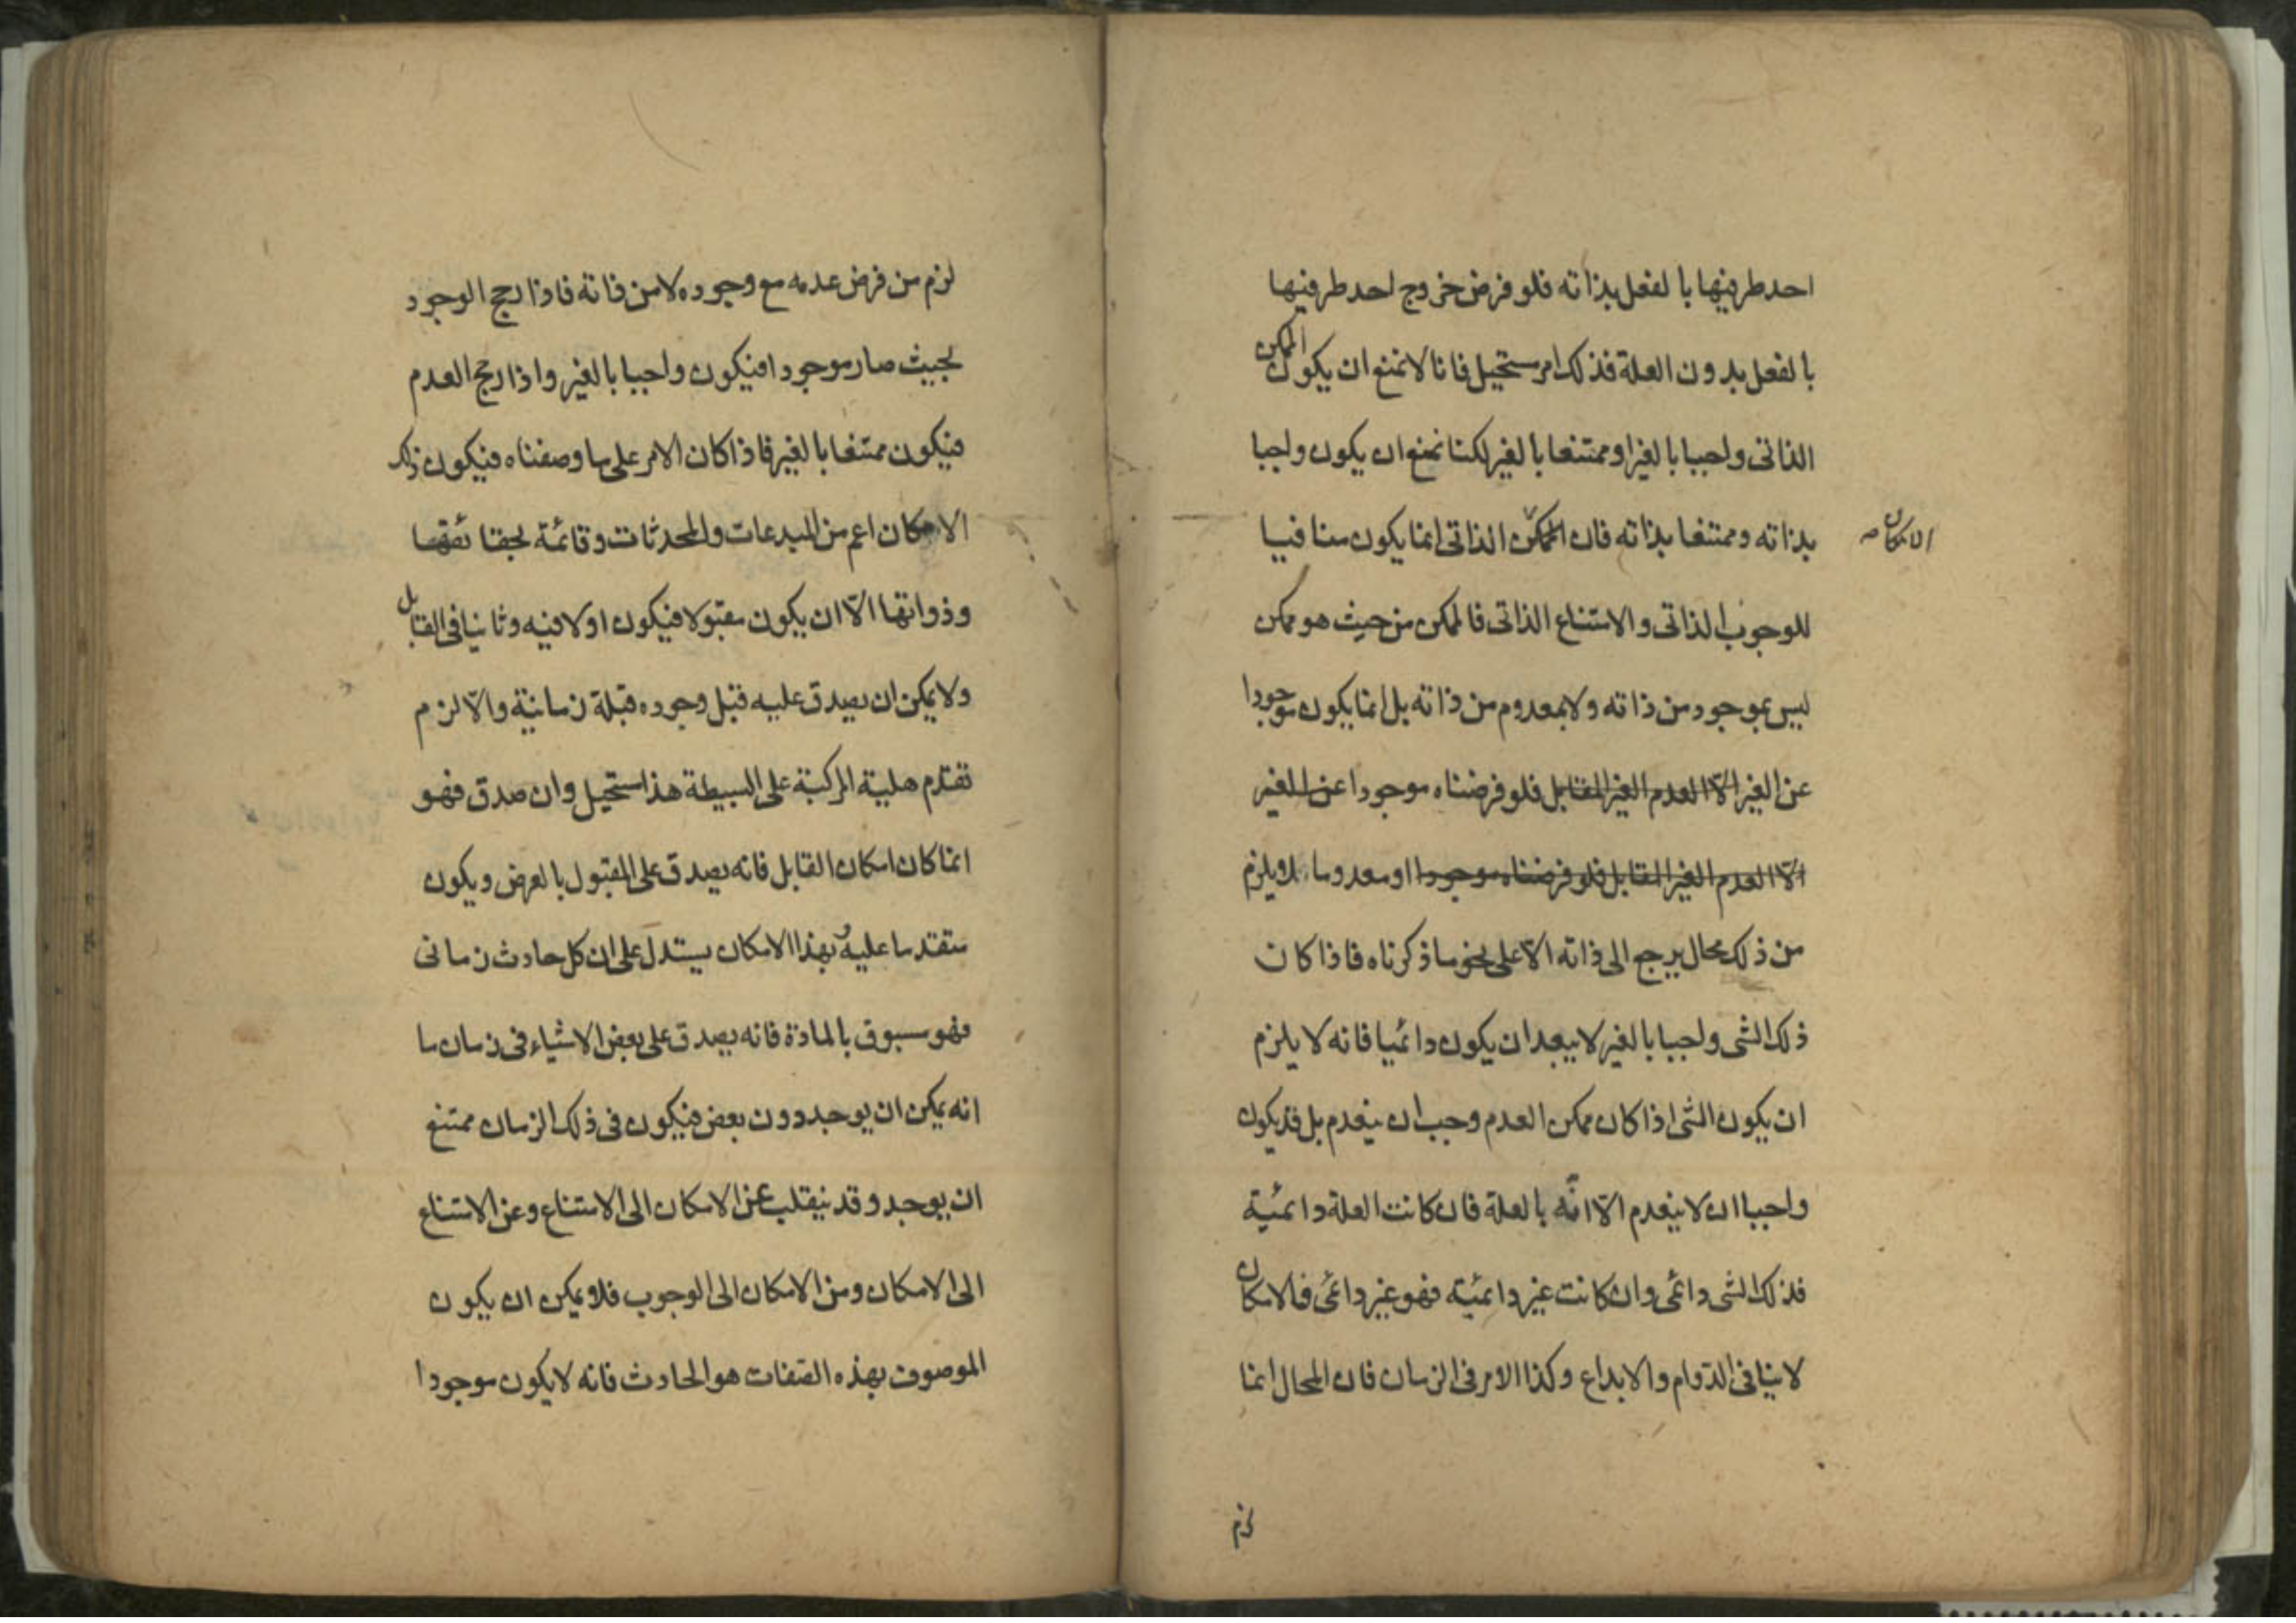 احد طرفيها بالفعل بذاته فلو فرض خروج احد طرفيها
بالفعل بدون العلة فذلك امر مستحيل فانا لا نمنع ان يكون الممكن
الذاتى واجبا بالغير او ممتنعا بالغير لكنا نمنع ان يكون واجبا
بذاته وممتنعا بذاته فان الممكن الذاتى انما يكون منافيا
الامكان صح
للوجوب الذاتى والامتناع الذاتى فالممكن من حيث هو ممكن
ليس بموجود من ذاته ولا بمعدوم من ذاته بل انما يكون موجودا
عن الغير الّا العدم الغير المقابل فلو فرضناه موجودا عن الغير
الّا العدم الغير المقابل فلو فرضناه موجودا او معدوما فلا يلزم
من ذلك محال يرجع الى ذاته الّا على نحو ما ذكرناه فاذا كان
ذلك الشى واجبا بالغير لا يبعد ان يكون دائميا فانه لا يلزم
ان يكون الشى اذا كان ممكن العدم وجب ان ينعدم بل قد يكون
واجبا ان لا ينعدم الّا انّه بالعلة فان كانت العلة دائمية
فذلك الشى دائمى وان كانت غير دائمية فهو غير دائمى فالامكان
لا ينافى الدّوام والابداع وكذا الامر فى الزمان فان المحال انما
لزم
لزم من فرض عدمه مع وجوده لا من ذاته فاذا رجح الوجود
بحيث صار موجودا فيكون واجبا بالغير واذا رجح العدم
فيكون ممتنعا بالغير فاذا كان الامر على ما وصفناه فيكون ذلك
الامكان اعم من المبدعات والمحدثات وقائمة بحقائقها
وذواتها الّا ان يكون مقبولا فيكون اولا فيه وثانيا فى القابل
ولا يمكن ان يصدق عليه قبل وجوده قبلة زمانية والّا لزم
تقدم هلية المركبة على البسيطة هذا مستحيل وان صدق فهو
انما كان امكان القابل فانه يصدق على المقبول بالعرض ويكون
متقدما عليه وبهذا الامكان يستدل على ان كل حادث زمانى
فهو مسبوق بالمادة فانه يصدق على بعض الاشياء فى زمان ما
انه يمكن ان يوجد دون بعض فيكون فى ذلك الزمان ممتنع
ان يوجد وقد ينقلب عن الامكان الى الامتناع وعن الامتناع
الى الامكان ومن الامكان الى الوجوب فلا يمكن ان يكون
الموصوف بهذه الصّفات هو الحادث فانه لا يكون موجودا